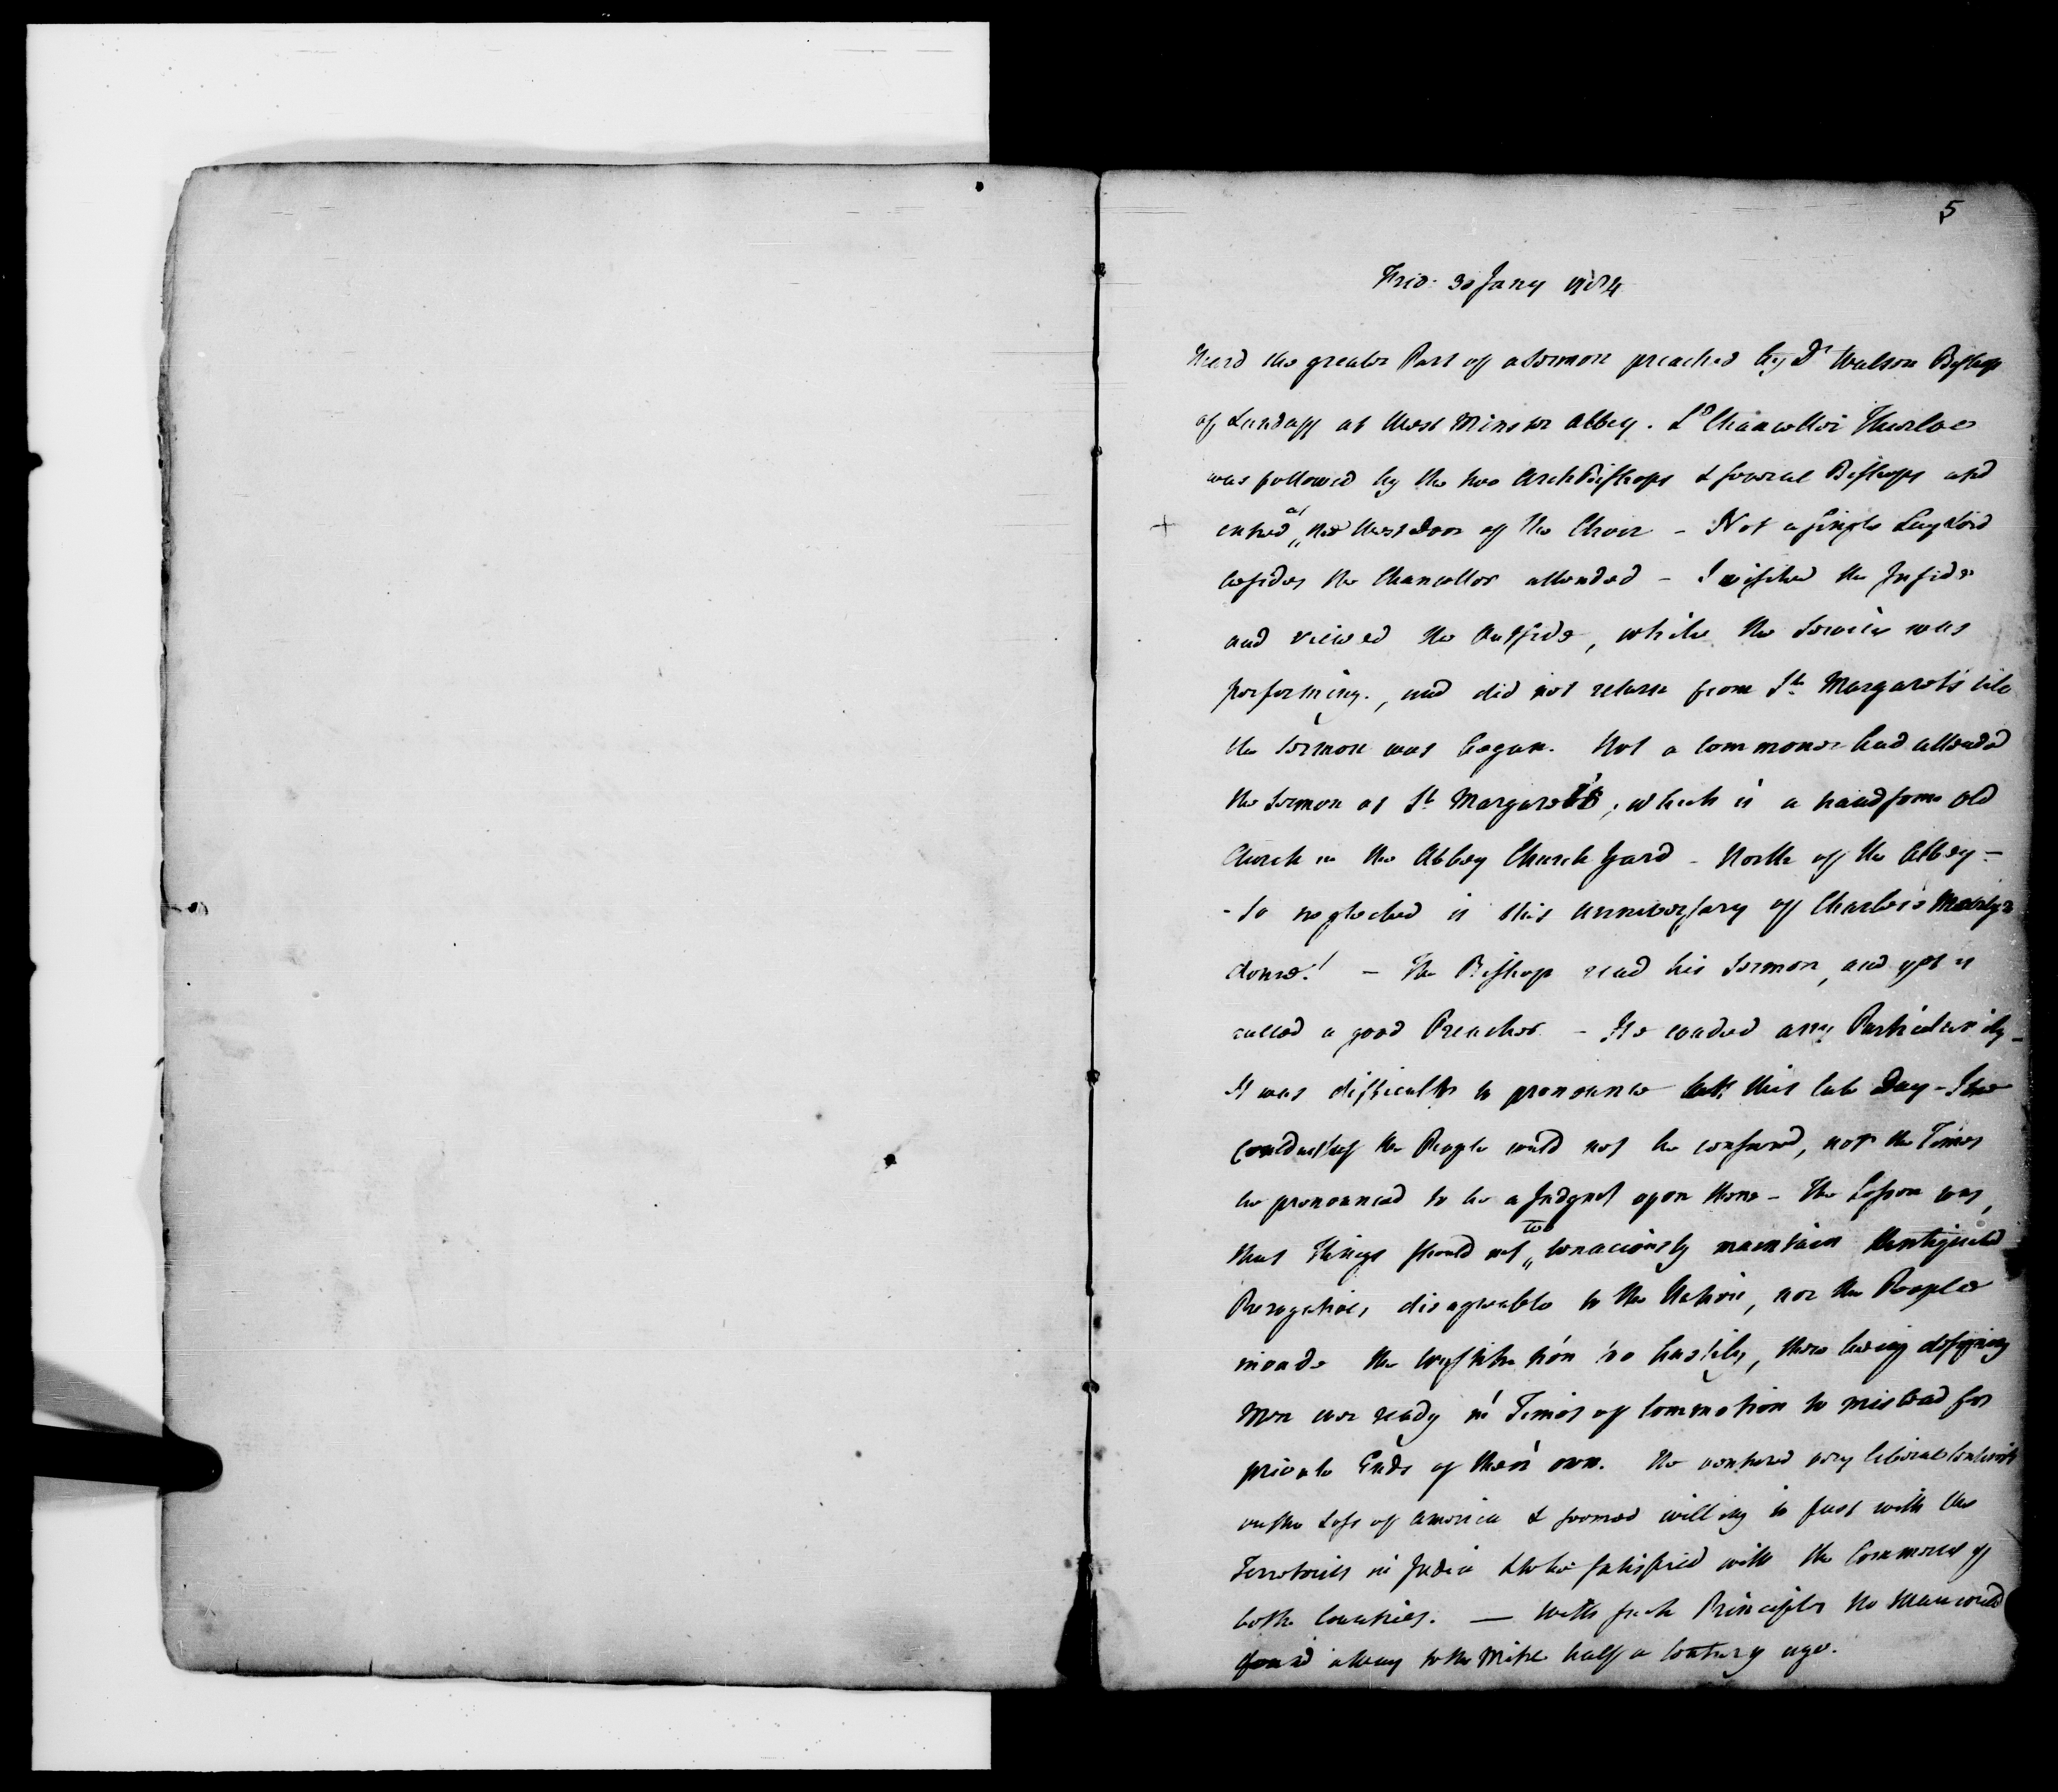 5
Frid: 30 Jany 1784
Heard the greater Part of a Sermon preached by Dr Watson Bishop
of Landaff at West Minster Abbey. Ld Chancellor Thurloe
was followed by the two ArchBishops & several Bishops and
+ entred at the West Door of the Choir - Not a single Lay Lord
besides the Chancellor attended - I visited the Inside
and viewed the Outside, while the Service was
performing, and did not return from St Margarets till
the Sermon was began. Not a commoner had attended
the Sermon at St Margarets, which is a handsome old
Church in the Abbey Church Yard - North of the Abbey -
- So neglected is this anniversary of Charles's Martyr
dome! - The Bishop read his Sermon, and yet is
called a good Preacher - He evaded any Particularity -
It was difficult to pronounce at this late Day - The
Conduct of the People could not be censured, nor the Times
be pronounced to be a Judgmt upon them - The Lesson was,
that Kings should not too tenaciously maintain Antiquated
Prerogatives disagreable to the Nation, nor the People
invade the Constitution too hastily, there being designing
Men ever ready in Times of Commotion to mislead for
private Ends of their own. He ventured very liberal Sentimts
on the Loss of America & seemed willing to part with the
Territories in India & to be satisfied with the Commerce of
both Countries. — With such Principles no Man could
found a Way to the Mitre half a Century ago.